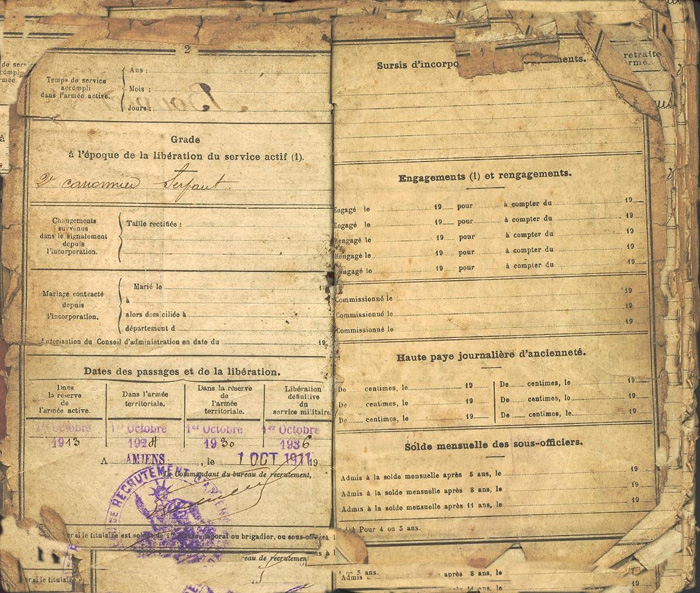 2
Temps de service
accompli
dans l'armée active.
Ans :
Mois :
Jours :
Grade
à l'époque de la libération du service actif (1).
2e canonnier Servant
Changements
survenus
dans le signalement
depuis
l'incorporation.
Taille rectifiée :
Mariage contracté
depuis
l'incorporation.
Marié le
à
alors domiciliée à
département d
Autorisation du Conseil d'administration en date du 19
Dates des passages et de la libération.
Dans
la réserve
de
l'armée active.
Dans l'armée
territoriale.
Dans la réserve
de
l'armée
territoriale.
Libération
définitive
du
service militaire.
1er Octobre 1er Octobre 1er Octobre 1er Octobre
1913 1930 1936
A AMIENS, le 1 OCT 1911 19
Commandant du bureau de recrutement,
RECRUTEMENT
si le titulaire est ou brigadier, ou sous-officier
eau de recrutement
si le titulaire
Sursis d'incorpo ments.
retraite
Engagements (1) et rengagements.
Engagé le 19 pour à compter du 19
Engagé le 19 pour à compter du 19
Rengagé le 19 pour à compter du 19
Rengagé le 19 pour à compter du 19
Rengagé le 19 pour à compter du 19
Commissionné le 19
Commissionné le 19
Commissionné le 19
Haute paye journalière d'ancienneté.
De centimes, le 19 De centimes, le 19
De centimes, le 19 De centimes, le 19
De centimes, le 19 De centimes, le 19
Solde mensuelle des sous-officiers.
Admis à la solde mensuelle après 5 ans, le 19
Admis à la solde mensuelle après 8 ans, le 19
Admis à la solde mensuelle après 11 ans, le 19
Pour 4 ou 5 ans.
ou 5 ans.
Admis après 8 ans, le
ans, le 19